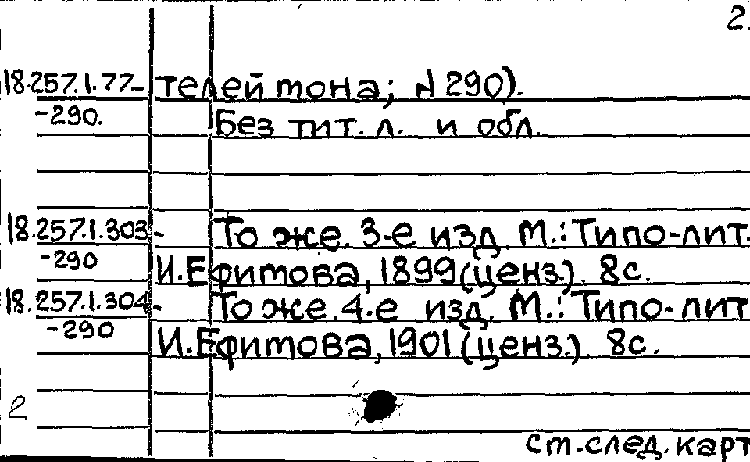 2.
18.257.1.77- телей тона; N 290).
-290. Без тит. л. и обл.
18.257.1.303- То же. 3-е изд. М.: Типо-лит.
-290 И.Ефимова, 1899 (ценз.). 8с.
18.257.1.304- То же. 4-е изд. М.: Типо-лит
-290 И.Ефимова, 1901 (ценз.) 8с.
2
ст.след.карт